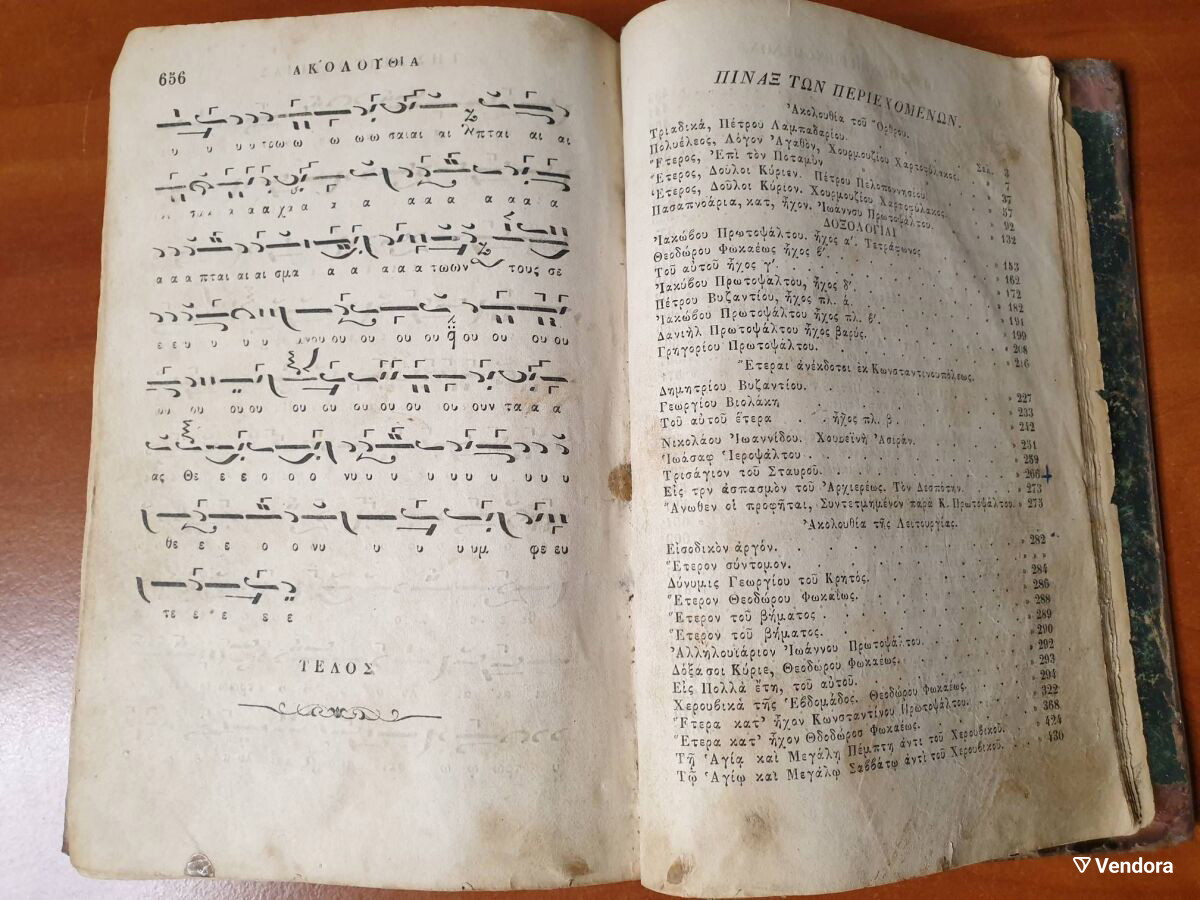 656
ΑΚΟΛΟΥΘΙΑ
υ υ υ υ τρω ω ω ω ω σαι αι αι απται αι αι
α α α χμα α α α α α α α α α
α α α πται αι αι σμα α α α ι α α τωων τους σε
ε ευ υ υ υ ου ου ου ου ου ου ου ου
ου ου ου ου ου ου ου ου ου ουν τα α α
ας Θε ε ε ο ο ο νυ υ υ υ υ υ υ
θε ε ε ε ο ο νυ υ υ υ υ υμ φε ευ
τε ε ε ε ε ε
ΤΕΛΟΣ
ΠΙΝΑΞ ΤΩΝ ΠΕΡΙΕΧΟΜΕΝΩΝ.
Ἀκολουθία τοῦ Ὄρθρου.
Τριαδικά, Πέτρου Λαμπαδαρίου. Σελ. 3
Πολυέλεος, Λόγον Ἀγαθὸν, Χουρμουζίου Χαρτοφύλακος. » 7
Ἕτερος, Ἐπὶ τὸν Ποταμὸν » 37
Ἕτερος, Δοῦλοι Κύριεν. Πέτρου Πελοποννησίου. » 57
Ἕτερος, Δοῦλοι Κύριον. Χουρμουζίου Χαρτοφύλακος. » 92
Πασαπνοάρια, κατ, ἦχον. Ἰωάννου Πρωτοψάλτου. » 132
ΔΟΞΟΛΟΓΙΑΙ
Ἰακώβου Πρωτοψάλτου. ἦχος α΄. Τετράφωνος » 153
Θεοδώρου Φωκαέως ἦχος β΄. » 162
Τοῦ αὐτοῦ ἦχος γ΄. » 172
Ἰακώβου Πρωτοψάλτου, ἦχος δ΄. » 182
Πέτρου Βυζαντίου, ἦχος πλ. ά. » 191
Ἰακώβου Πρωτοψάλτου ἦχος πλ. β΄. » 199
Δανιὴλ Πρωτοψάλτου ἦχος βαρύς. » 208
Γρηγορίου Πρωτοψάλτου. » 216
Ἕτεραι ἀνέκδοτοι ἐκ Κωνσταντινουπόλεως.
Δημητρίου Βυζαντίου. » 227
Γεωργίου Βιολάκη » 233
Τοῦ αὐτοῦ ἕτερα ἦχος πλ. β. » 242
Νικολάου Ἰωαννίδου. Χουσεϊνὴ Ἀσιράν. » 251
Ἰωάσαφ Ἱεροψάλτου » 259
Τρισάγιον τοῦ Σταυροῦ. » 266
Εἰς τρν ἀσπασμὸν τοῦ Ἀρχιερέως. Τὸν Δεσπότην. » 273
Ἄνωθεν οἱ προφῆται, Συντετμημένον παρὰ Κ. Πρωτοψάλτου. » 275
Ἀκολουθία τῆς Λειτουργίας.
Εἰσοδικὸν ἀργόν. » 282
Ἕτερον σύντομον. » » »
Δύνυμις Γεωργίου τοῦ Κρητός. » 284
Ἕτερον Θεοδώρου Φωκαέως. » 286
Ἕτερον τοῦ βήματος » 288
Ἕτερον τοῦ βήματος. » 289
Ἀλληλουϊάριον Ἰωάννου Πρωτοψάλτου. » 290
Δόξασοι Κύριε, Θεοδώρου Φωκαέως. » 292
Εἰς Πολλὰ ἔτη, τοῦ αὐτοῦ. » 293
Χερουβικὰ τῆς Ἑβδομάδος. Θεοδώρου Φωκαέως. » 294
Ἕτερα κατ' ἦχον Κωνσταντίνου Πρωτοψάλτου. » 322
Ἕτερα κατ' ἦχον Θδοδώροσ Φωκαέως. » 368
Τῇ Ἁγίᾳ καὶ Μεγάλῃ Πέμπτῃ ἀντὶ τοῦ Χερουβικοῦ. » 424
Τῷ Ἁγίῳ καὶ Μεγάλῳ Σαββάτῳ ἀντὶ τοῦ Χερουβικοῦ. » 430
Vendora